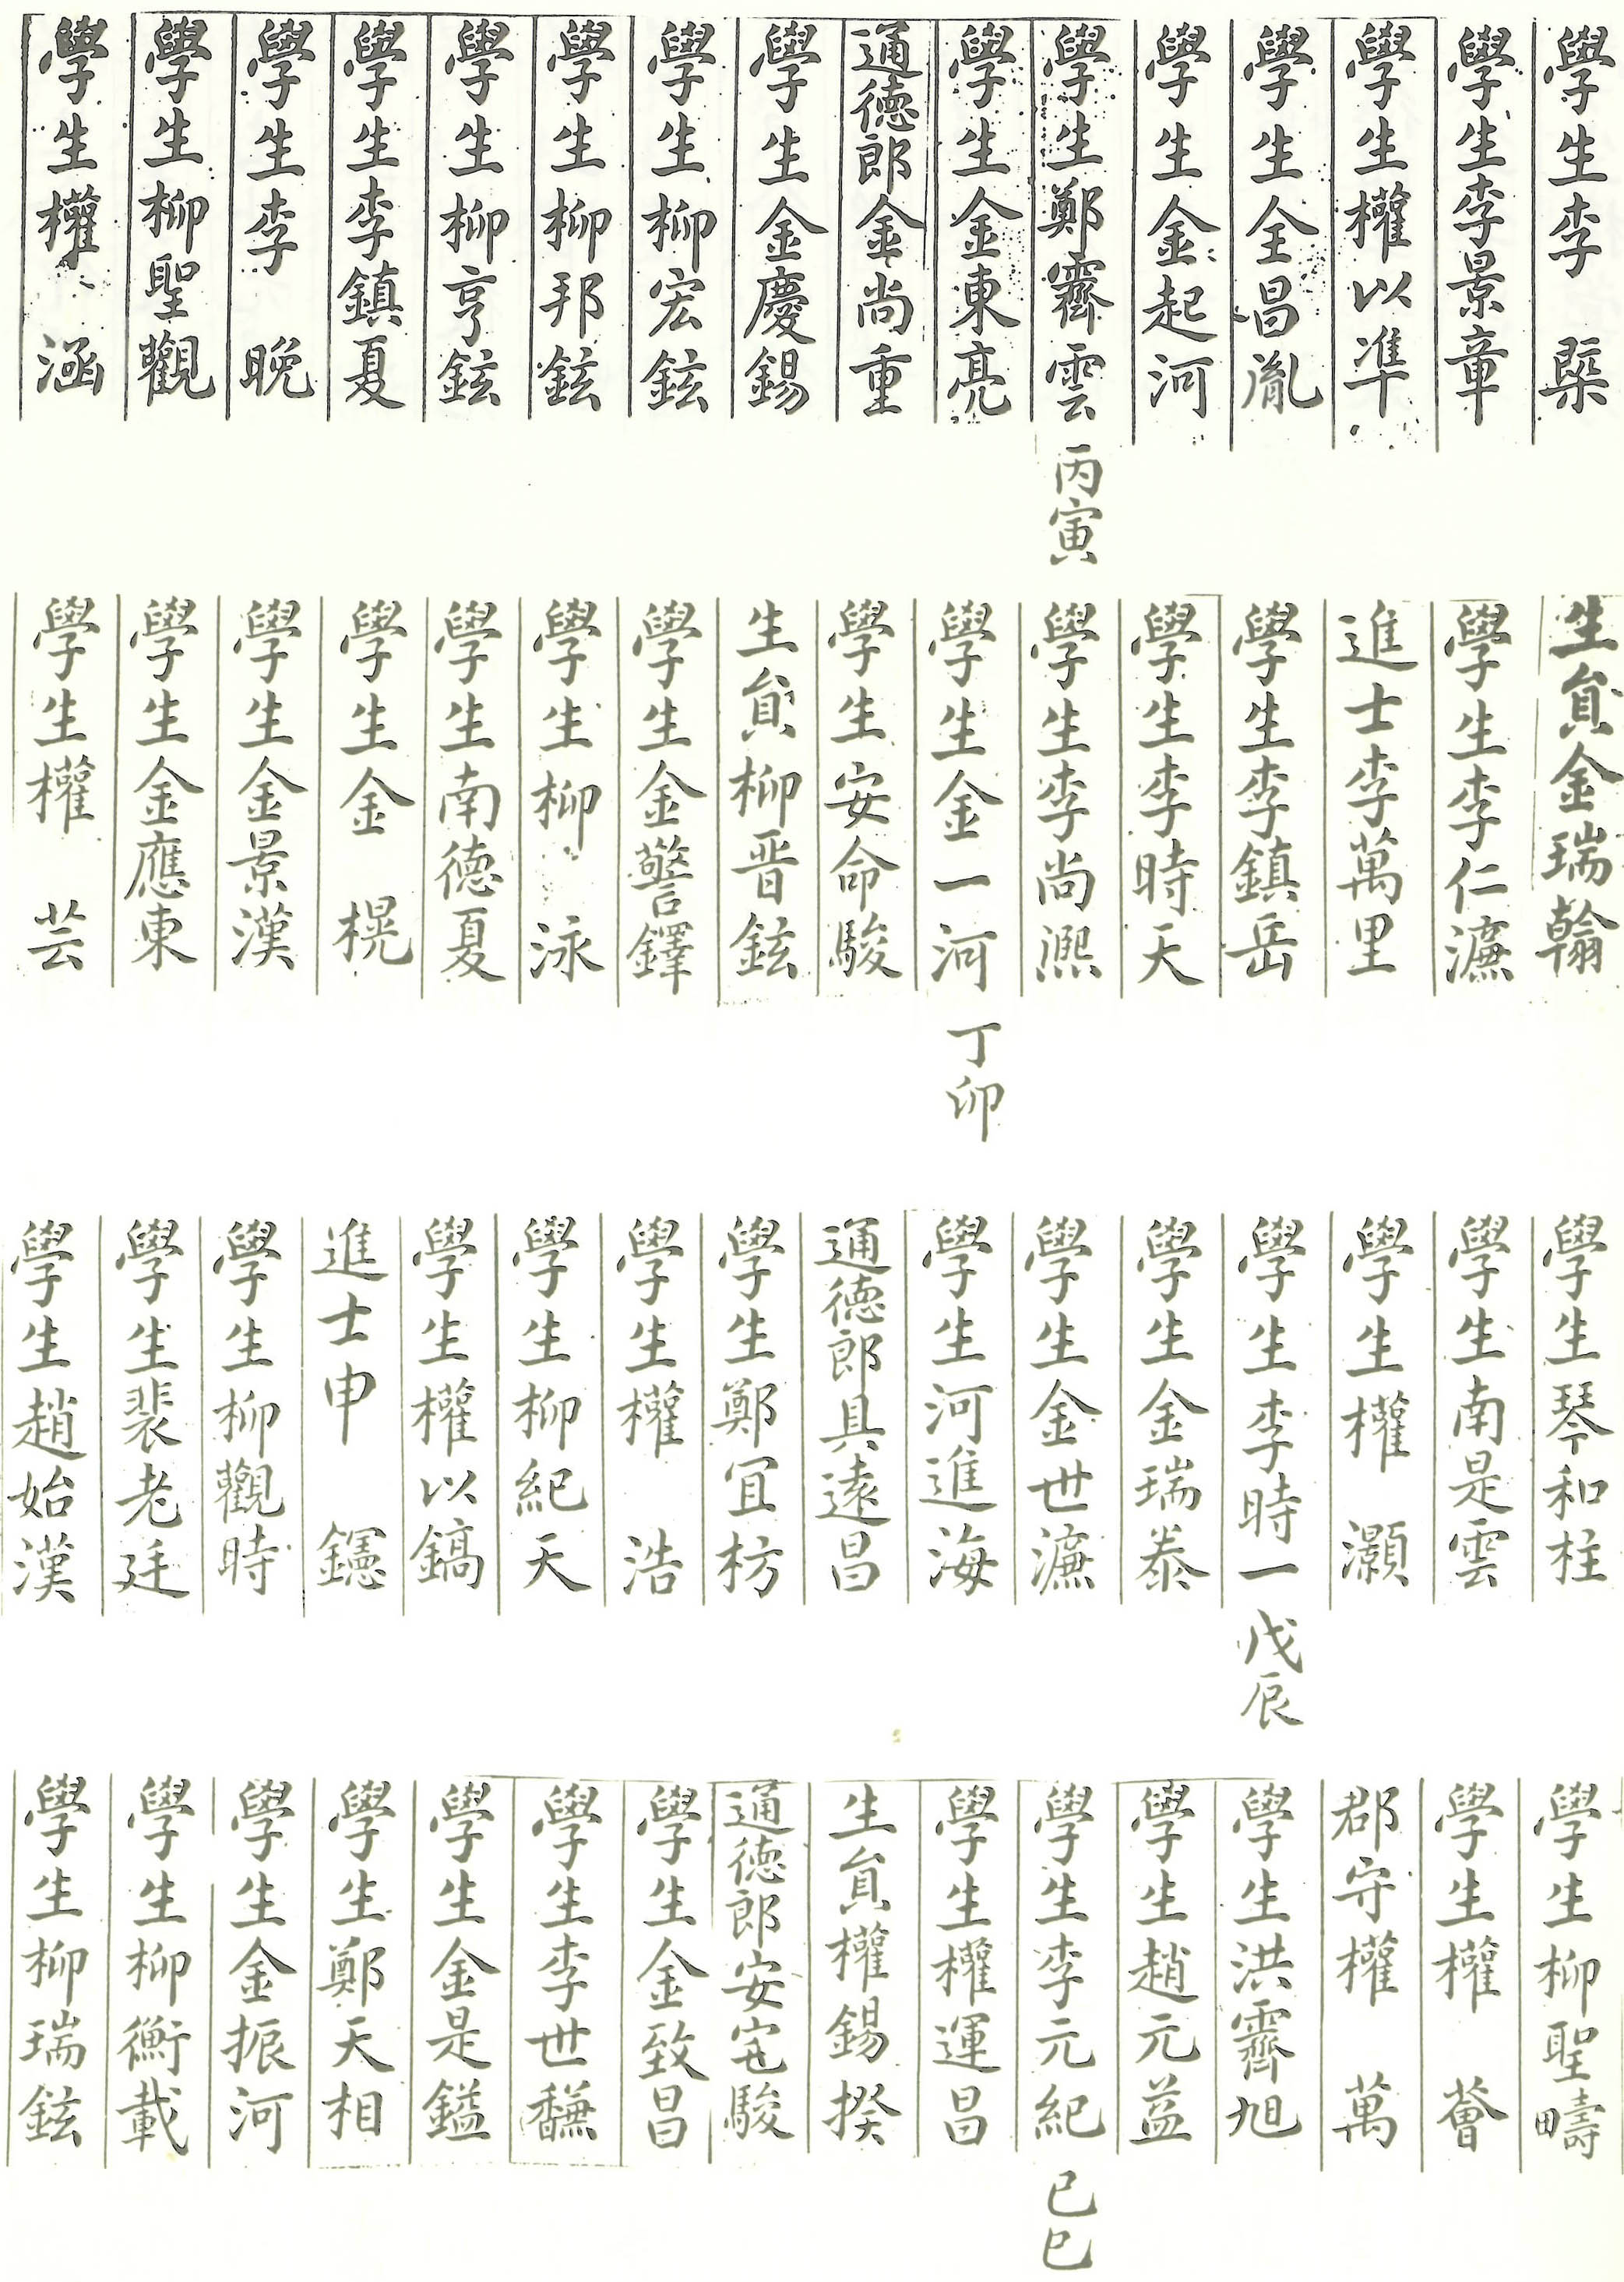 學生李 槩
學生李景章
學生權以準
學生全昌胤
學生金起河
學生鄭霽雲 丙寅
學生金東亮
通德郎金尚重
學生金慶錫
學生柳宏鉉
學生柳邦鉉
學生柳亨鉉
學生李鎮夏
學生李 晩
學生柳聖觀
學生權 涵
生員金瑞翰
學生李仁濂
進士李萬里
學生李鎮岳
學生李時天
學生李尚凞
學生金一河 丁卯
學生安命駿
生員柳晋鉉
學生金警鐸
學生柳 泳
學生南德夏
學生金 榥
學生金景漢
學生金應東
學生權 芸
學生琴和柱
學生南是雲
學生權 灝
學生李時一 戊辰
學生金瑞泰
學生金世濂
學生河進海
通德郎具遠昌
學生鄭宜枋
學生權 浩
學生柳紀天
學生權以鎬
進士申 鑢
學生柳觀時
學生裴老廷
學生趙始漢
學生柳聖疇
學生權 薈
郡守權 萬
學生洪霽旭
學生趙元益
學生李元紀 己巳
學生權運昌
生員權錫揆
通德郎安宅駿
學生金致昌
學生李世馦
學生金是鎰
學生鄭天相
學生金振河
學生柳衡載
學生柳瑞鉉